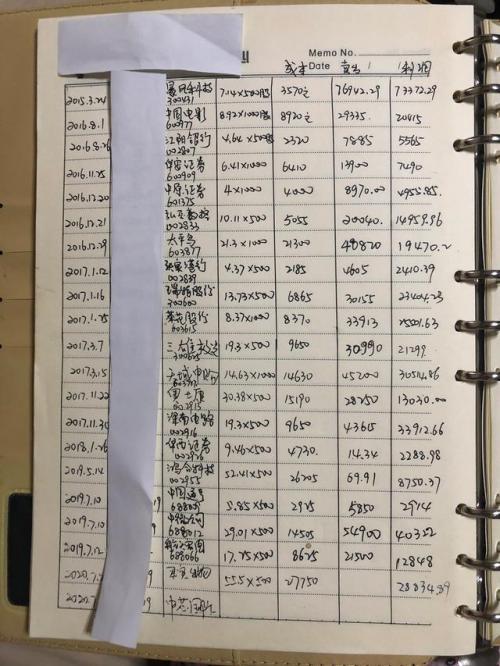 Memo No.
Date
成本 卖出 利润
2015.3.24 暴风科技 7.14×500股 3570元 76942.29 73372.29
300431
2016.8.1 中国电影 8.92×1000股 8920元 29335 20415
600977
2016.8.26 江阴银行 4.64×500股 2320 7885 5565
002807
2016.11.25 华安证券 6.41×1000 6410 13900 7490
600909
2016.12.20 中原证券 4×1000 4000 8970.00 4955.85
601375
2016.12.21 弘亚数控 10.11×500 5055 20040. 14959.96
002833
2016.12.29 太平鸟 21.3×1000 21300 40820 19470.
603877
2017.1.12 张家港行 4.37×500 2185 4605 2410.39
002839
2017.1.16 13.73×500 6865 30155 23404.23
300600
2017.1.25 茶花股份 8.37×1000 8370 33913 25501.63
603615
2017.3.7 19.3×500 9650 30990 21299
2017.3.15 14.63×1000 14630 45200 30514.86
2017.11.22 30.38×500 15190 28250 13030.00
002915
2017.11.30 深南电路 19.3×500 9650 43605 33912.66
002916
2018.1.26 华西证券 9.46×500 4730. 14.34 2288.98
002926
2019.5.14 鸿合科技 52.41×500 26205 69.91 8750.37
002955
2019.7.10 中国通号 5.85×500 2925 5850 2914
688009
2019.7.10 29.01×500 14505 54900 40322
688012
2019.7.12 17.25×500 8625 21500 12848
688066
2020.7. 55.5×500 27750 28834.89
2020.7. 中芯国际